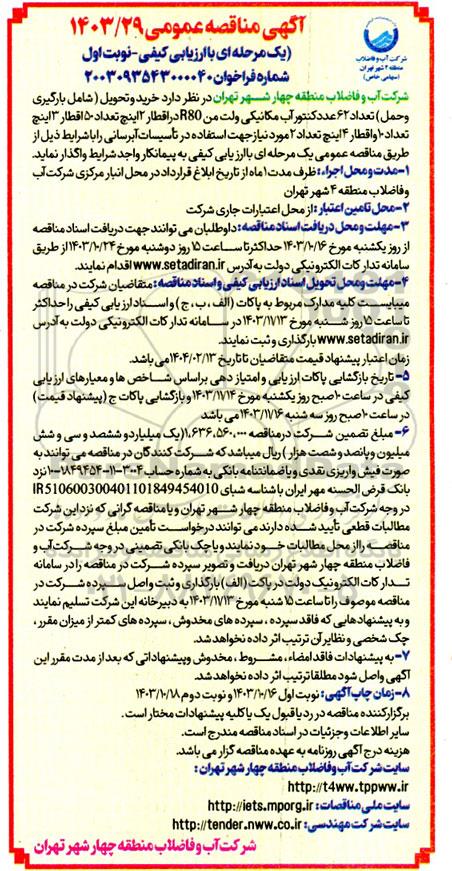 آگهی مناقصه عمومی ۱۴۰۳/۲۹
(یک مرحله ای با ارزیابی کیفی - نوبت اول
شماره فراخوان ۲۰۰۳۰۹۳۵۴۳۰۰۰۰۴۰
شرکت آب و فاضلاب
منطقه ۴ شهر تهران
(سهامی خاص)
شرکت آب و فاضلاب منطقه چهار شهر تهران در نظر دارد خرید و تحویل (شامل بارگیری
وحمل) تعداد ۶۲ عدد کنتور آب مکانیکی ولت من R80 در اقطار ۲ اینچ تعداد ۵۰ اقطار ۳ اینچ
تعداد ۱۰ و اقطار ۴ اینچ تعداد ۲ مورد نیاز جهت استفاده در تأسیسات آبرسانی را با شرایط ذیل از
طریق مناقصه عمومی یک مرحله ای با ارزیابی کیفی به پیمانکار واجد شرایط واگذار نماید.
۱- مدت و محل اجراء: ظرف مدت ۱ ماه از تاریخ ابلاغ قرارداد در محل انبار مرکزی شرکت آب
وفاضلاب منطقه ۴ شهر تهران
۲- محل تامین اعتبار: از محل اعتبارات جاری شرکت
۳- مهلت و محل دریافت اسناد مناقصه: داوطلبان می توانند جهت دریافت اسناد مناقصه
از روز یکشنبه مورخ ۱۴۰۳/۱۰/۱۶ حداکثر تا ساعت ۱۵ روز دوشنبه مورخ ۱۴۰۳/۱۰/۲۴ از طریق
سامانه تدارکات الکترونیکی دولت به آدرس www.setadiran.ir اقدام نمایند.
۴- مهلت و محل تحویل اسناد ارزیابی کیفی و اسناد مناقصه: متقاضیان شرکت در مناقصه
میبایست کلیه مدارک مربوط به پاکات (الف، ب، ج) و اسناد ارزیابی کیفی را حداکثر
تا ساعت ۱۵ روز شنبه مورخ ۱۴۰۳/۱۱/۱۳ در سامانه تدارکات الکترونیکی دولت به آدرس
www.setadiran.ir بارگذاری و ثبت نمایند.
زمان اعتبار پیشنهاد قیمت متقاضیان تا تاریخ ۱۴۰۴/۰۲/۱۳ می باشد.
۵- تاریخ بازگشایی پاکات ارزیابی و امتیاز دهی براساس شاخص ها و معیارهای ارزیابی
کیفی در ساعت ۱۰ صبح روز یکشنبه مورخ ۱۴۰۳/۱۱/۱۴ و بازگشایی پاکات ج (پیشنهاد قیمت)
در ساعت ۱۰ صبح روز سه شنبه ۱۴۰۳/۱۱/۱۶ می باشد
۶- مبلغ تضمین شرکت در مناقصه ۱,۶۳۶,۵۶۰,۰۰۰ (یک میلیارد و ششصد و سی و شش
میلیون و پانصد و شصت هزار) ریال میباشد که شرکت کنندگان در مناقصه می توانند به
صورت فیش واریزی نقدی و یا ضمانتنامه بانکی به شماره حساب ۳۰۰۴-۱۱-۱۸۴۹۴۵۴-۱۰ نزد
بانک قرض الحسنه مهر ایران با شناسه شبای IR510600300401101849454010
در وجه شرکت آب و فاضلاب منطقه چهار شهر تهران و یا مناقصه گرانی که نزد این شرکت
مطالبات قطعی تأیید شده دارند می توانند درخواست تأمین مبلغ سپرده شرکت در
مناقصه را از محل مطالبات خود نمایند و یا چک بانکی تضمینی در وجه شرکت آب و
فاضلاب منطقه چهار شهر تهران دریافت و تصویر سپرده شرکت در مناقصه را در سامانه
تدارکات الکترونیک دولت در پاکت (الف) بارگذاری و ثبت واصل سپرده شرکت در
مناقصه موصوف را تا ساعت ۱۵ شنبه مورخ ۱۴۰۳/۱۱/۱۳ به دبیرخانه این شرکت تسلیم نمایند
و به پیشنهادهایی که فاقد سپرده، سپرده های مخدوش، سپرده های کمتر از میزان مقرر،
چک شخصی و نظایر آن ترتیب اثر داده نخواهد شد.
۷- به پیشنهادات فاقد امضاء، مشروط، مخدوش و پیشنهاداتی که بعد از مدت مقرر این
آگهی واصل شود مطلقا ترتیب اثر داده نخواهد شد.
۸- زمان چاپ آگهی: نوبت اول ۱۴۰۳/۱۰/۱۶ و نوبت دوم ۱۴۰۳/۱۰/۱۸
برگزارکننده مناقصه در رد یا قبول یک یا کلیه پیشنهادات مختار است.
سایر اطلاعات و جزئیات در اسناد مناقصه مندرج است.
هزینه درج آگهی روزنامه به عهده مناقصه گزار می باشد.
سایت شرکت آب و فاضلاب منطقه چهار شهر تهران:
http://t4ww.tppww.ir
سایت ملی مناقصات: http://iets.mporg.ir
سایت شرکت مهندسی: http://tender.nww.co.ir
شرکت آب و فاضلاب منطقه چهار شهر تهران